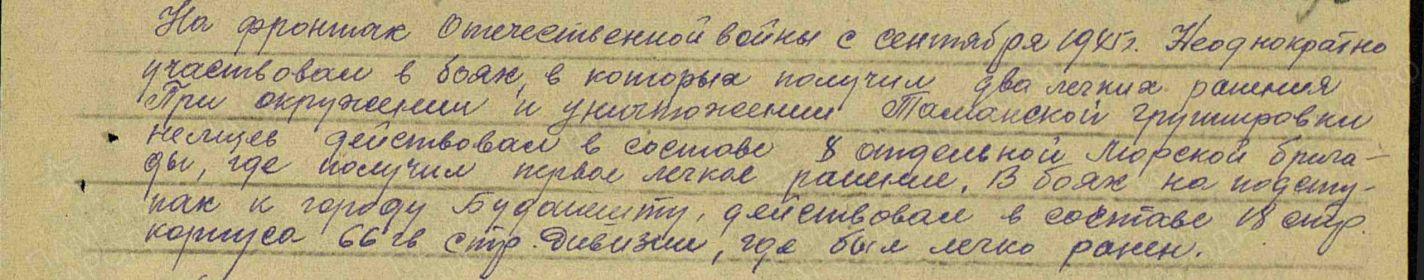 На фронтах Отечественной войны с сентября 1945г. Неоднократно
участвовал в боях, в которых получил два легких ранения
При окружении и уничтожении Таманской группировки
немцев действовал в составе 8 отдельной Морской брига-
ды, где получил первое легкое ранение. В боях на подсту-
пах к городу Будапешту, действовал в составе 18 стр.
корпуса 66 гв стр. дивизии, где был легко ранен.